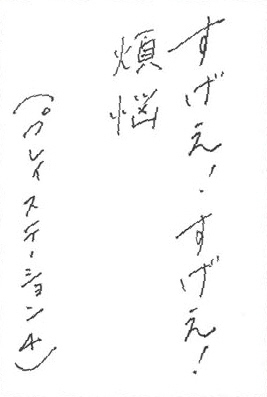 すげえ！すげえ！
煩悩
（プレイステーション4）